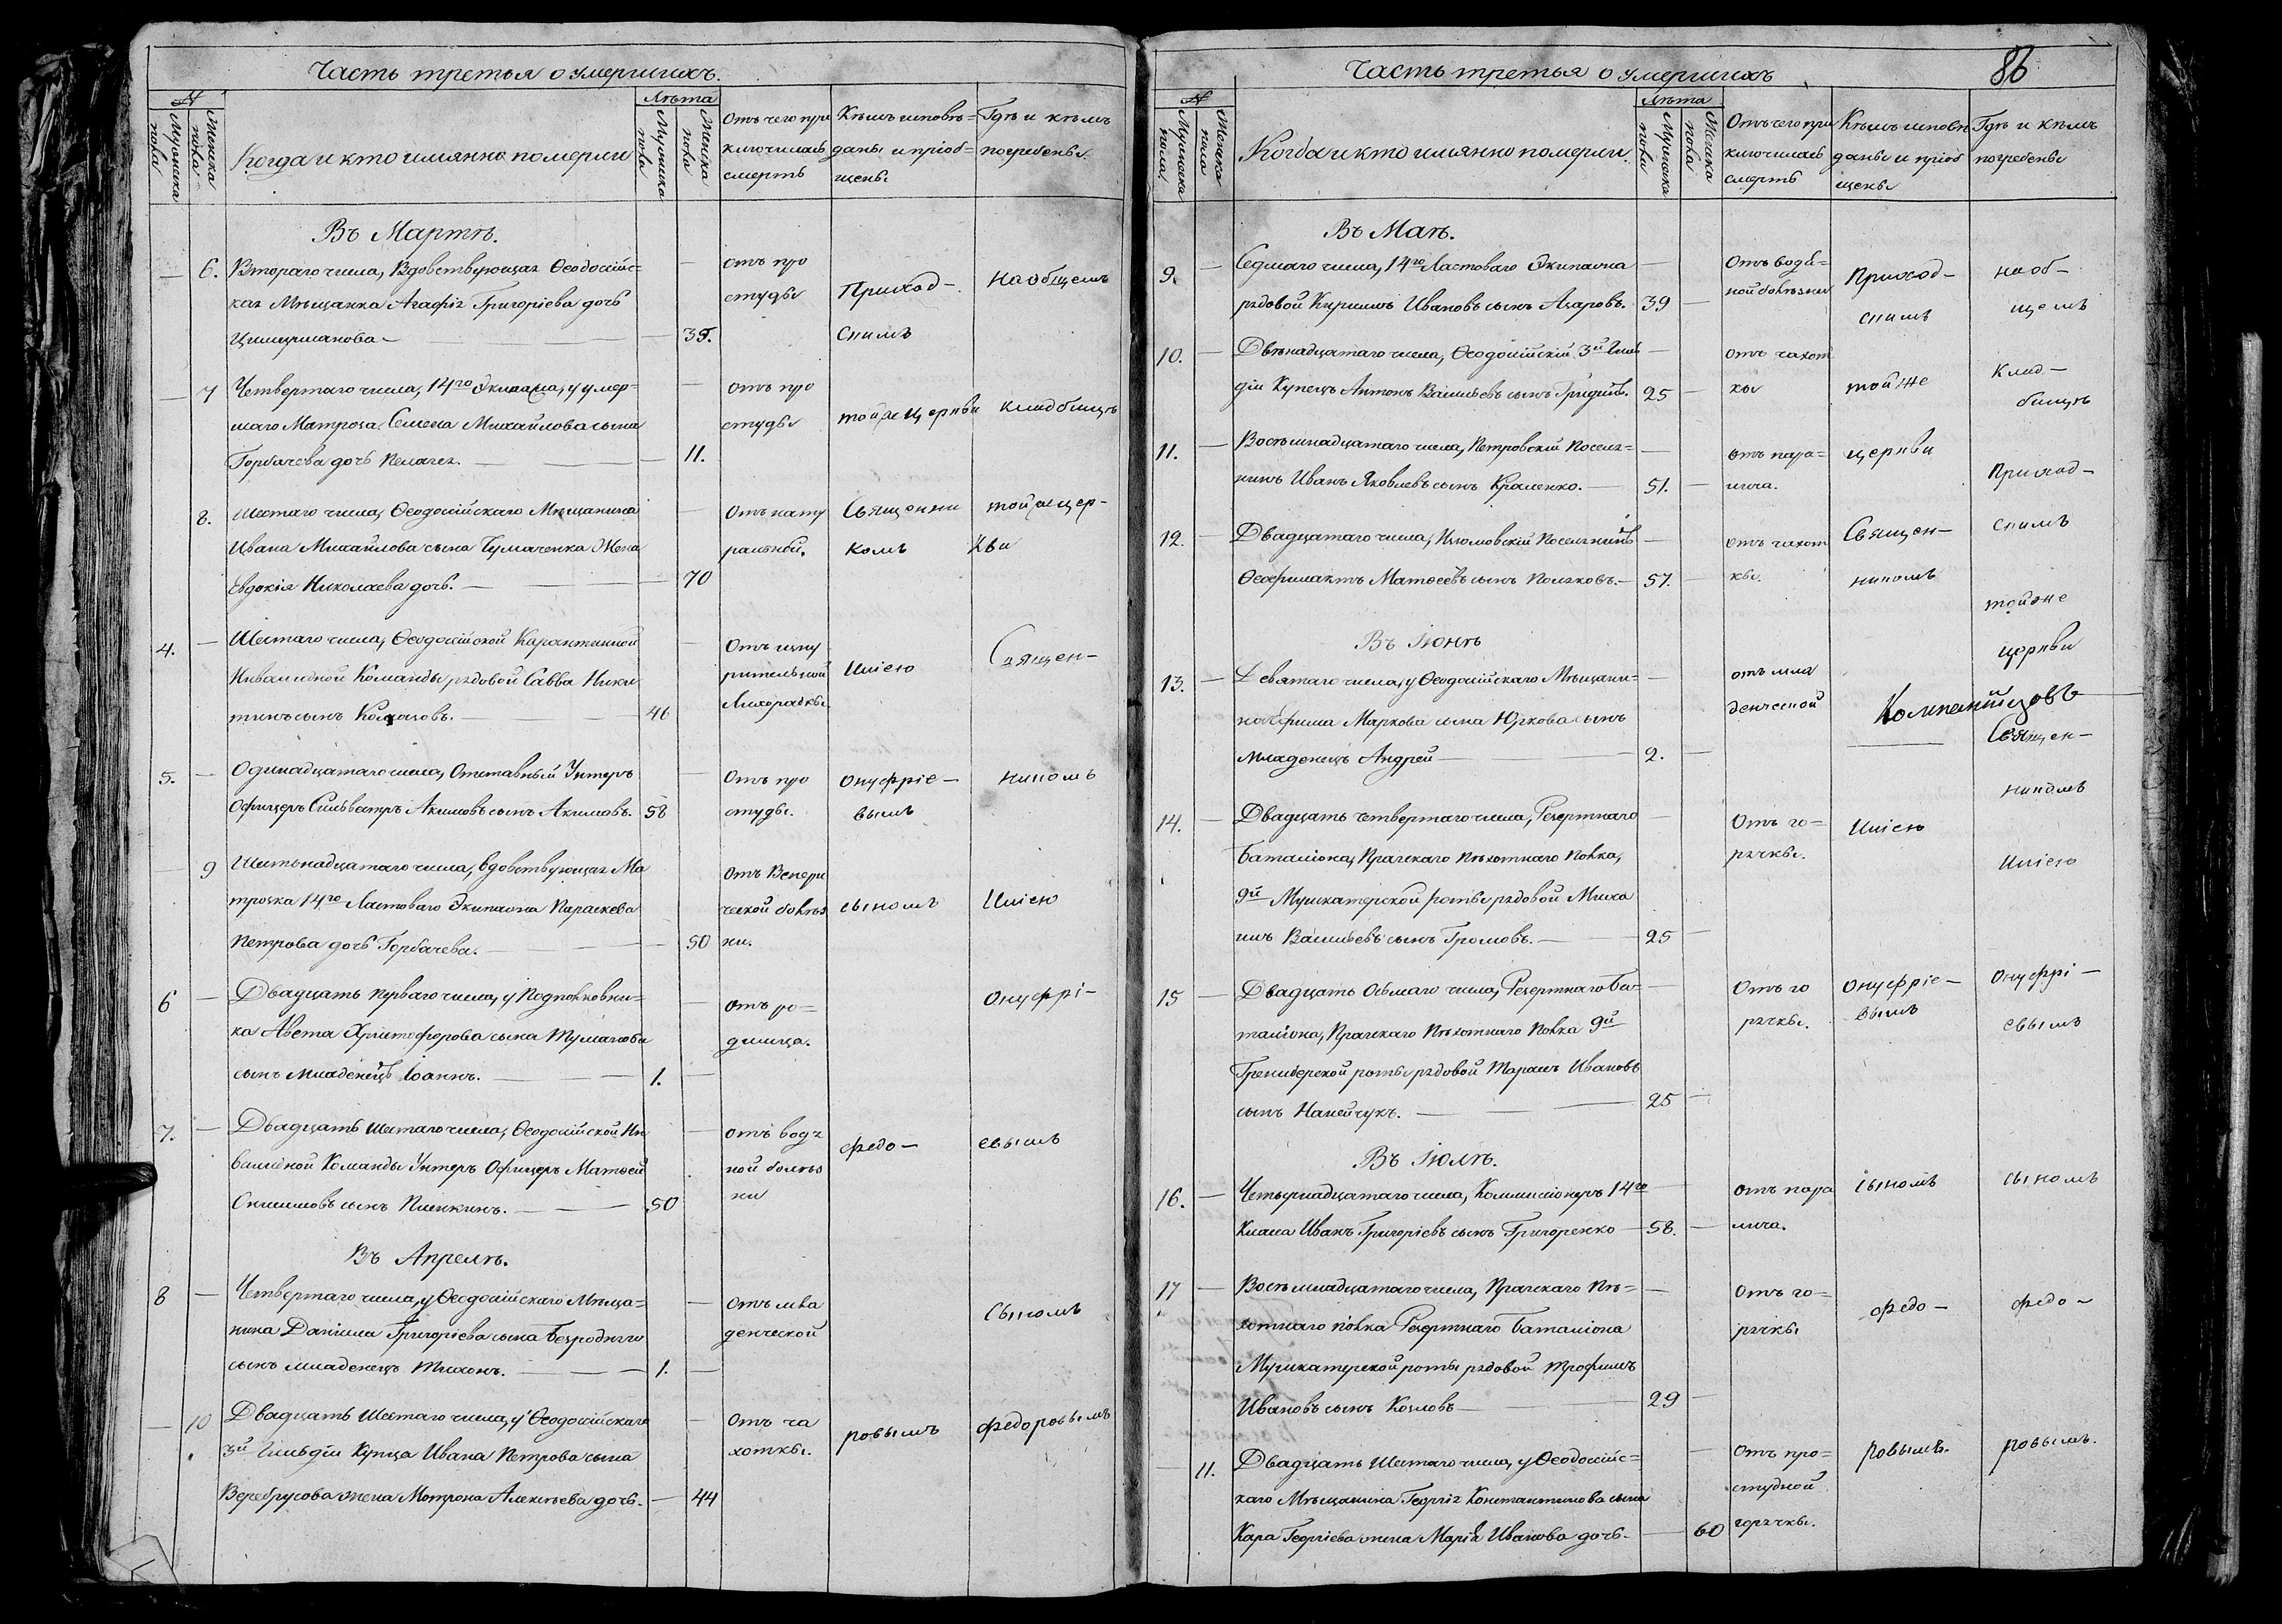 Часть третья о умершихъ.
№
Мужеска пола
Женска пола
Когда и кто имянно померли
Лѣта
Мужеска пола
Женска пола
Отъ чего при
ключилась
смерть
Кѣмъ исповѣ=
даны и пріоб=
щены
Гдѣ и кѣмъ
погребены.
Въ Мартѣ.
6. Втораго числа, Вдовствующая Ѳеодосійс=
кая Мѣщанка Агафія Григоріева дочь
35.
отъ про
студы
Приход-
скимъ
На общемъ
7 Четвертаго числа, 14го Экипажа, у умер=
шаго Матроза Семена Михайлова сына
Горбачева дочь Пелагея. 11.
отъ про
студы
той же церкви
кладбищѣ
8. Шестаго числа, Ѳеодосійскаго Мѣщанина
Ивана Михайлова сына Чумаченка Жена
Евдокія Николаева дочь. 70
Отъ нату
ральной.
Священни
комъ
той же цер-
кви
4. Шестаго числа, Ѳеодосійской Карантинной
Инвалидной Команды рядовой Савва Ники
тинъ сынъ 46
Отъ изну
рительной
Лихорадки.
Иліею
Священ-
5. Одинадцатаго числа, Отставный Унтеръ
Офицеръ Сильвестръ Акимовъ сынъ Акимовъ. 58
Отъ про
студы.
Онуфріе-
вымъ
никомъ
9 Шестьнадцатаго числа, вдовствующая Ма
троска 14го Ластоваго Экипажа Параскева
Петрова дочь Горбачева. 50
отъ Венери
ческой болѣз
ни.
сыномъ
Иліею
6 Двадцать перваго числа, у Подполковни=
ка Авета Христофорова сына Туманова
сынъ младенецъ Іоаннъ. 1.
отъ ро=
димца.
Онуфрі-
7. Двадцать шестаго числа, Ѳеодосійской Ин
валидной Команды Унтеръ Офицеръ Матѳей
сынъ Пшенкинъ. 50
отъ водя
ной болѣз
ни
Федо-
евымъ
Въ Апрелѣ.
8 Четвертаго числа, у Ѳеодосійскаго Мѣща=
нина Даніила Григоріева сына Безроднаго
сынъ младенецъ Тихонъ. 1.
Отъ мла
денческой
Сыномъ
10 Двадцать Шестаго числа, у Ѳеодосійскаго
3й Гильдіи Купца Ивана Петрова сына
Веребрусова жена Мотрона Алексѣева дочь. 44
Отъ ча
хотки.
ровымъ
Федоровымъ
Часть третья о умершихъ
86
№
Мужеска пола.
Женска пола
Когда и кто имянно померли.
Лѣта
Мужеска пола
Женска пола
Отъ чего при
ключилась
смерть
Кѣмъ исповѣ
даны и пріоб
щены
Гдѣ и кѣмъ
погребены
Въ Маѣ.
9. Седмаго числа, 14го Ластоваго Экипажа
рядовой Киримъ Ивановъ сынъ Азаровъ. 39
Отъ водя=
ной болѣзни
Приход-
скимъ
на об-
щемъ
10. Двѣнадцатаго числа, Ѳеодосійскій 3й Гиль
діи Купецъ Антонъ Васильевъ сынъ Гридинъ. 25
отъ чахот
ки
той же
клад-
бищѣ
11. Восемнадцатаго числа, Петровскій Поселя=
нинъ Иванъ Яковлевъ сынъ Краленко. 51.
отъ пара=
лича.
церкви
Приход-
12. Двадцатаго числа, Изюмовскій Поселянинъ
Ѳеофилактъ Матѳеевъ сынъ Поляковъ. 57.
отъ чахот
ки.
Священ-
никомъ
скимъ
той же
Въ Іюнѣ
церкви
13. Девятаго числа, у Ѳеодосійскаго Мѣщани=
на Ефима Маркова сына Юркова сынъ
младенецъ Андрей 2.
отъ мла
денческой
Компанѣйцовъ
Священ-
никомъ
14. Двадцать четвертаго числа, Резервнаго
Баталіона, Пражскаго Пѣхотнаго Полка,
9й Мушкатерской роты рядовой Миха
илъ Васильевъ сынъ Громовъ. 25
Отъ го=
рячки.
Иліею
Иліею
15 Двадцать Осьмаго числа, Резервнаго Ба=
таліона, Пражскаго Пѣхотнаго Полка 9й
Гренадерской роты рядовой Тарасъ Ивановъ
сынъ Налейчукъ. 25
Отъ го
рячки.
Онуфріе-
вымъ
Онуфрі-
евымъ
Въ Іюлѣ.
16. Четырнадцатаго числа, Коммисіонеръ 14го
Класа Иванъ Григоріевъ сынъ Григоренко 58.
отъ пара
лича.
сыномъ
сыномъ
17 Восемнадцатаго числа, Пражскаго Пѣ=
хотнаго полка Резервнаго Баталіона
Мушкатерской роты рядовой Трофимъ
Ивановъ сынъ Козловъ 29
Отъ го=
рячки
Федо-
Федо-
11. Двадцать Шестаго числа, у Ѳеодосійс=
каго Мѣщанина Георгія Константинова сына
Кара Георгіева жена Марія Иванова дочь. 60
Отъ про=
студной
горячки.
ровымъ.
ровымъ.